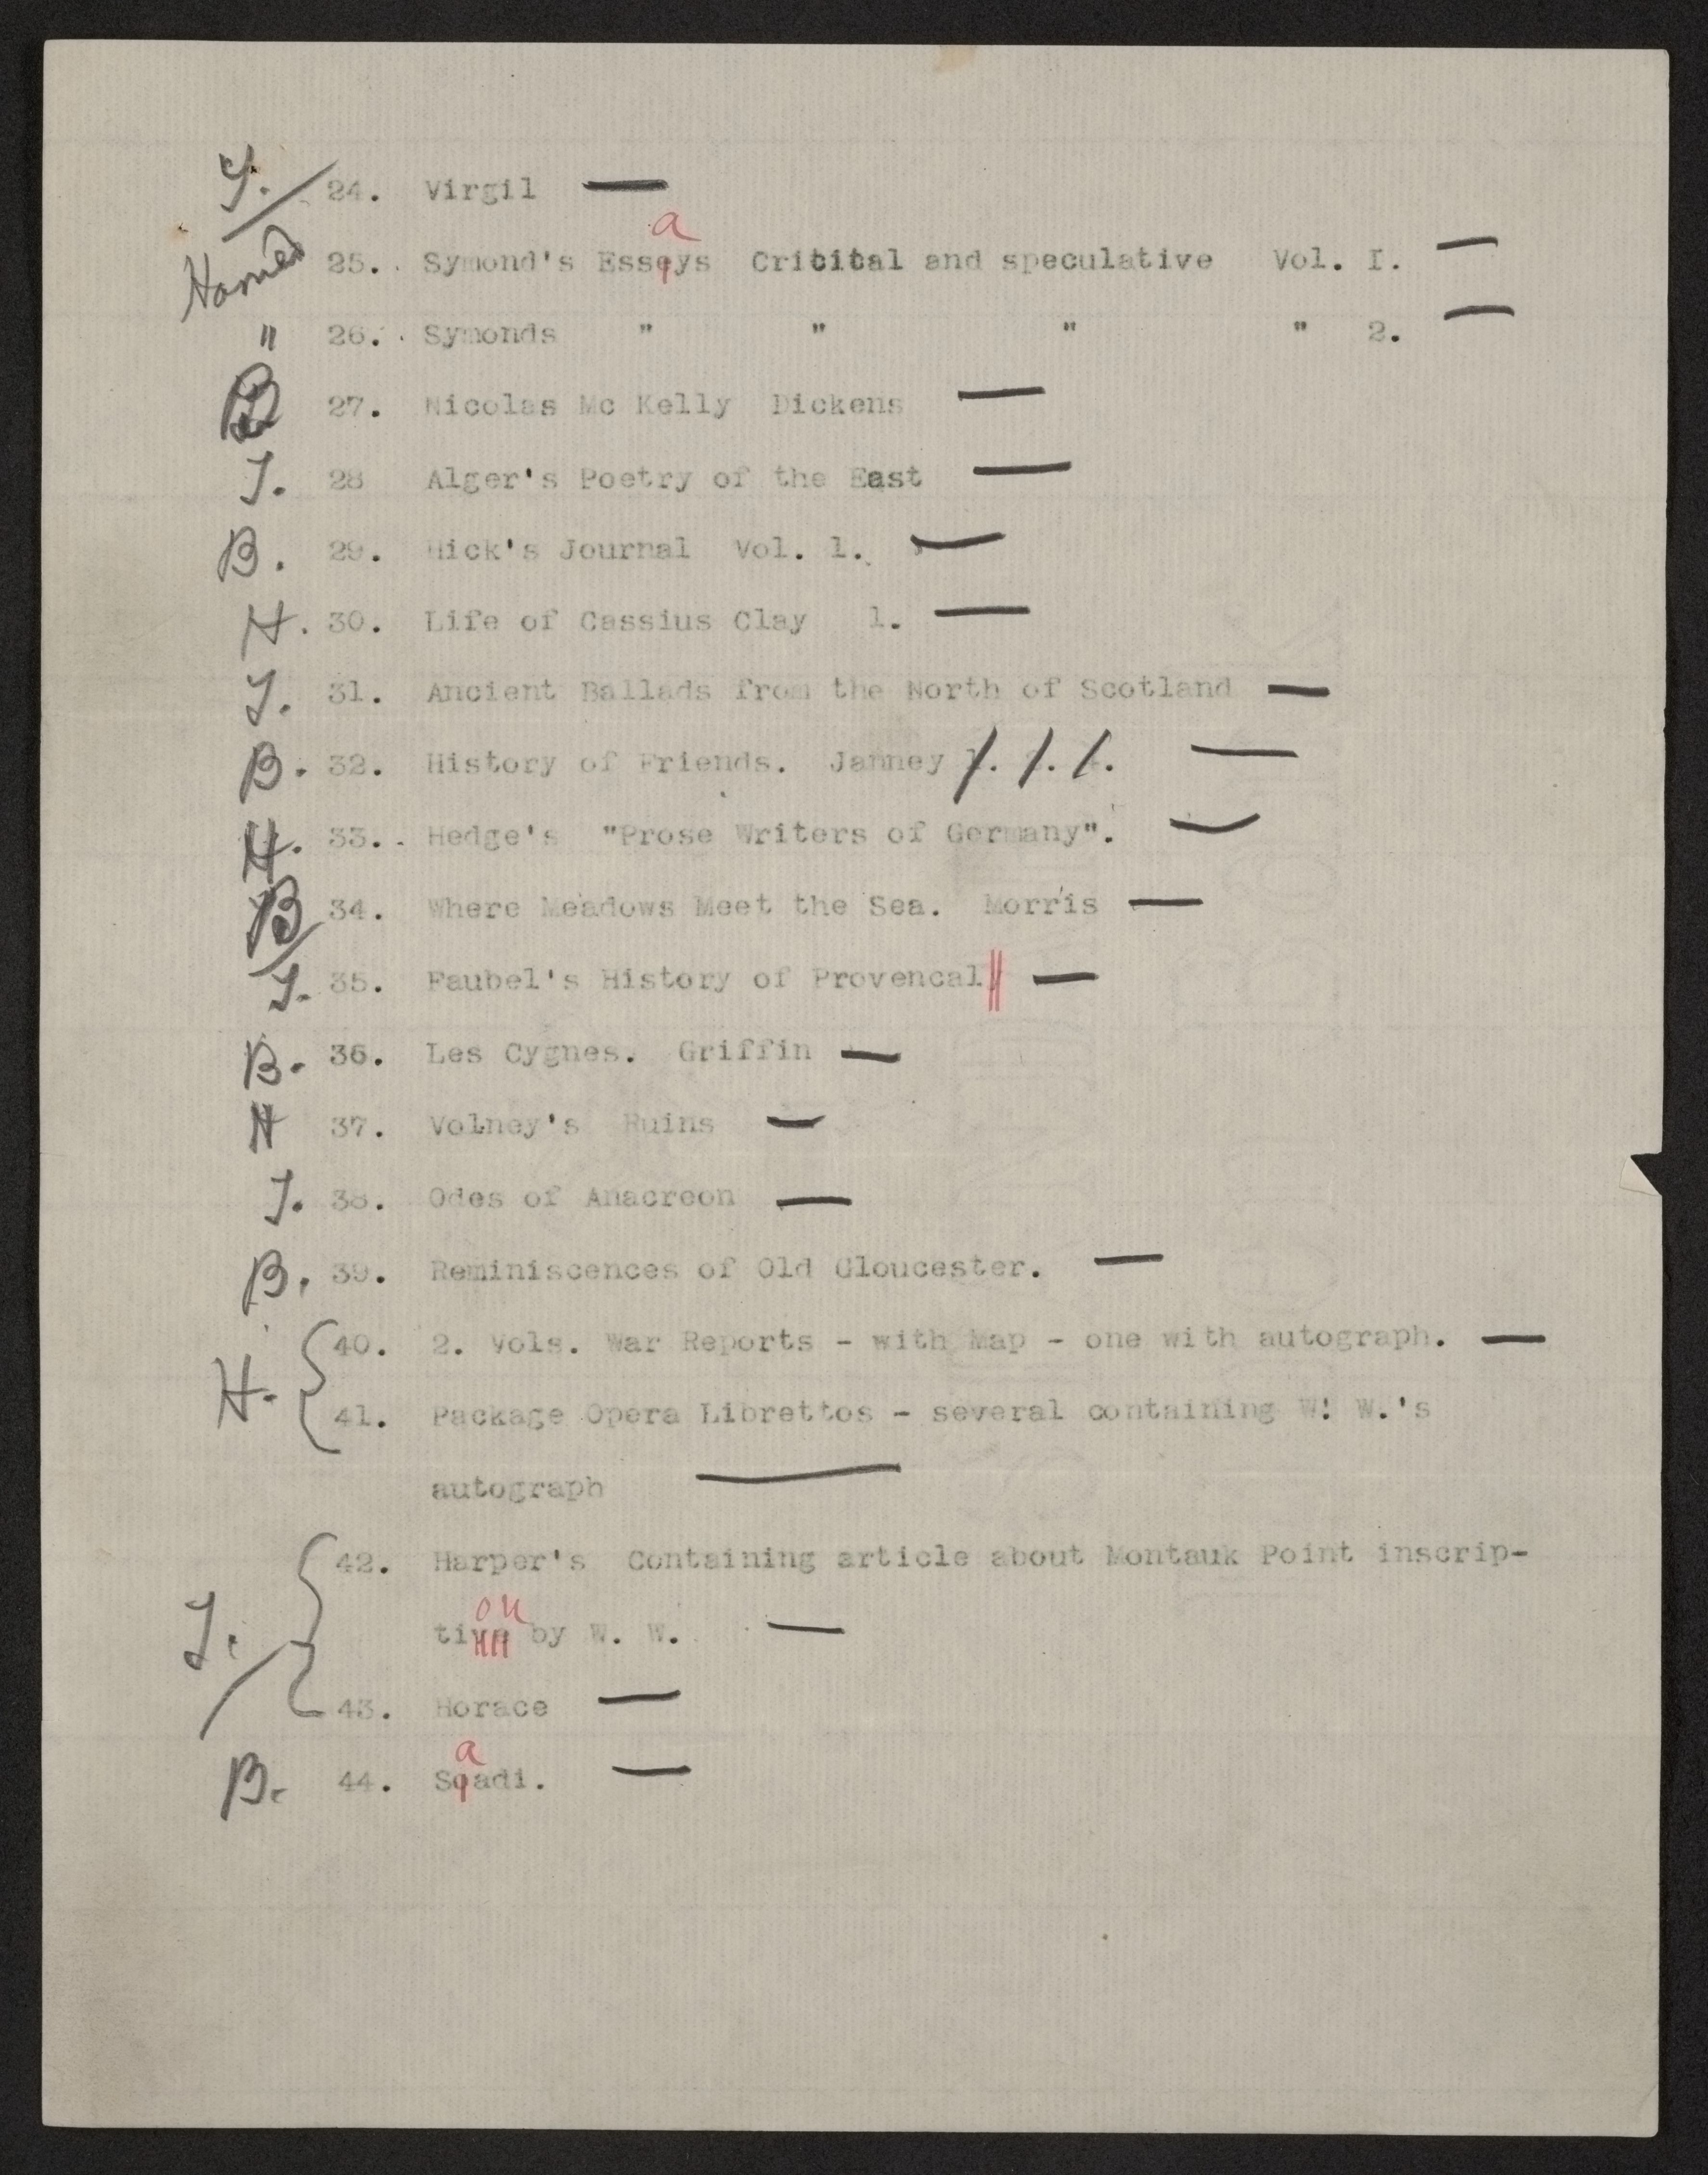 T. 24. Virgil —
a
Horned 25. Symond's Esseys Critital and speculative Vol. I. —
" 26. Symonds " " " " 2. —
B 27. Nicolas Mc Kelly Dickens —
T. 28 Alger's Poetry of the East —
B. 29. Hick's Journal Vol. 1. —
H. 30. Life of Cassius Clay 1. —
T. 31. Ancient Ballads from the North of Scotland —
B. 32. History of Friends. Janney 1. 1. 1. —
H. 33. Hedge's "Prose Writers of Germany". —
B 34. Where Meadows Meet the Sea. Morris —
T. 35. Faubel's History of Provencal —
B. 36. Les Cygnes. Griffin —
H 37. Volney's Ruins —
T. 38. Odes of Anacreon —
B. 39. Reminiscences of Old Gloucester. —
40. 2. Vols. War Reports - with Map - one with autograph. —
H.
41. Package Opera Librettos - several containing W! W.'s
autograph —
42. Harper's Containing article about Montauk Point inscrip-
on
T. tive by W. W. —
43. Horace —
a
B. 44. Soadi. —